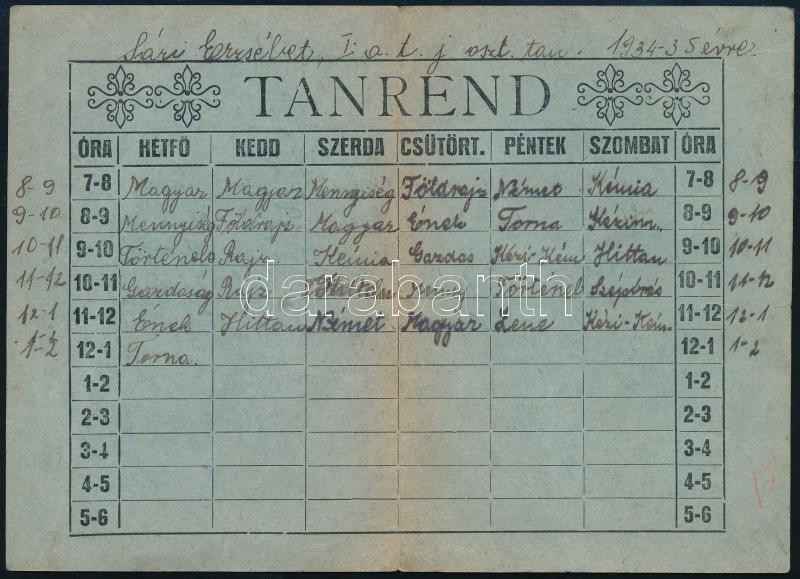 Sári Erzsébet, I. a. t. j oszt. tan. 1934-35 évre.
TANREND
ÓRA HÉTFŐ KEDD SZERDA CSÜTÖRT. PÉNTEK SZOMBAT ÓRA
8-9 7-8 Magyar Magyar Mennyiség Földrajz Német Kémia 7-8 8-9
9-10 8-9 Mennyiség Földrajz Magyar Ének Torna Kézim. 8-9 9-10
10-11 9-10 Történelo Rajz Kémia Gazdas Kézi-Kém Hittan 9-10 10-11
11-12 10-11 Gazdaság Rajz Menny Történel Szépírás 10-11 11-12
12-1 11-12 Ének Hittan Német Magyar Zene Kézi-Kém. 11-12 12-1
1-2 12-1 Torna. 12-1 1-2
1-2 1-2
2-3 2-3
3-4 3-4
4-5 4-5
5-6 5-6
darabanth